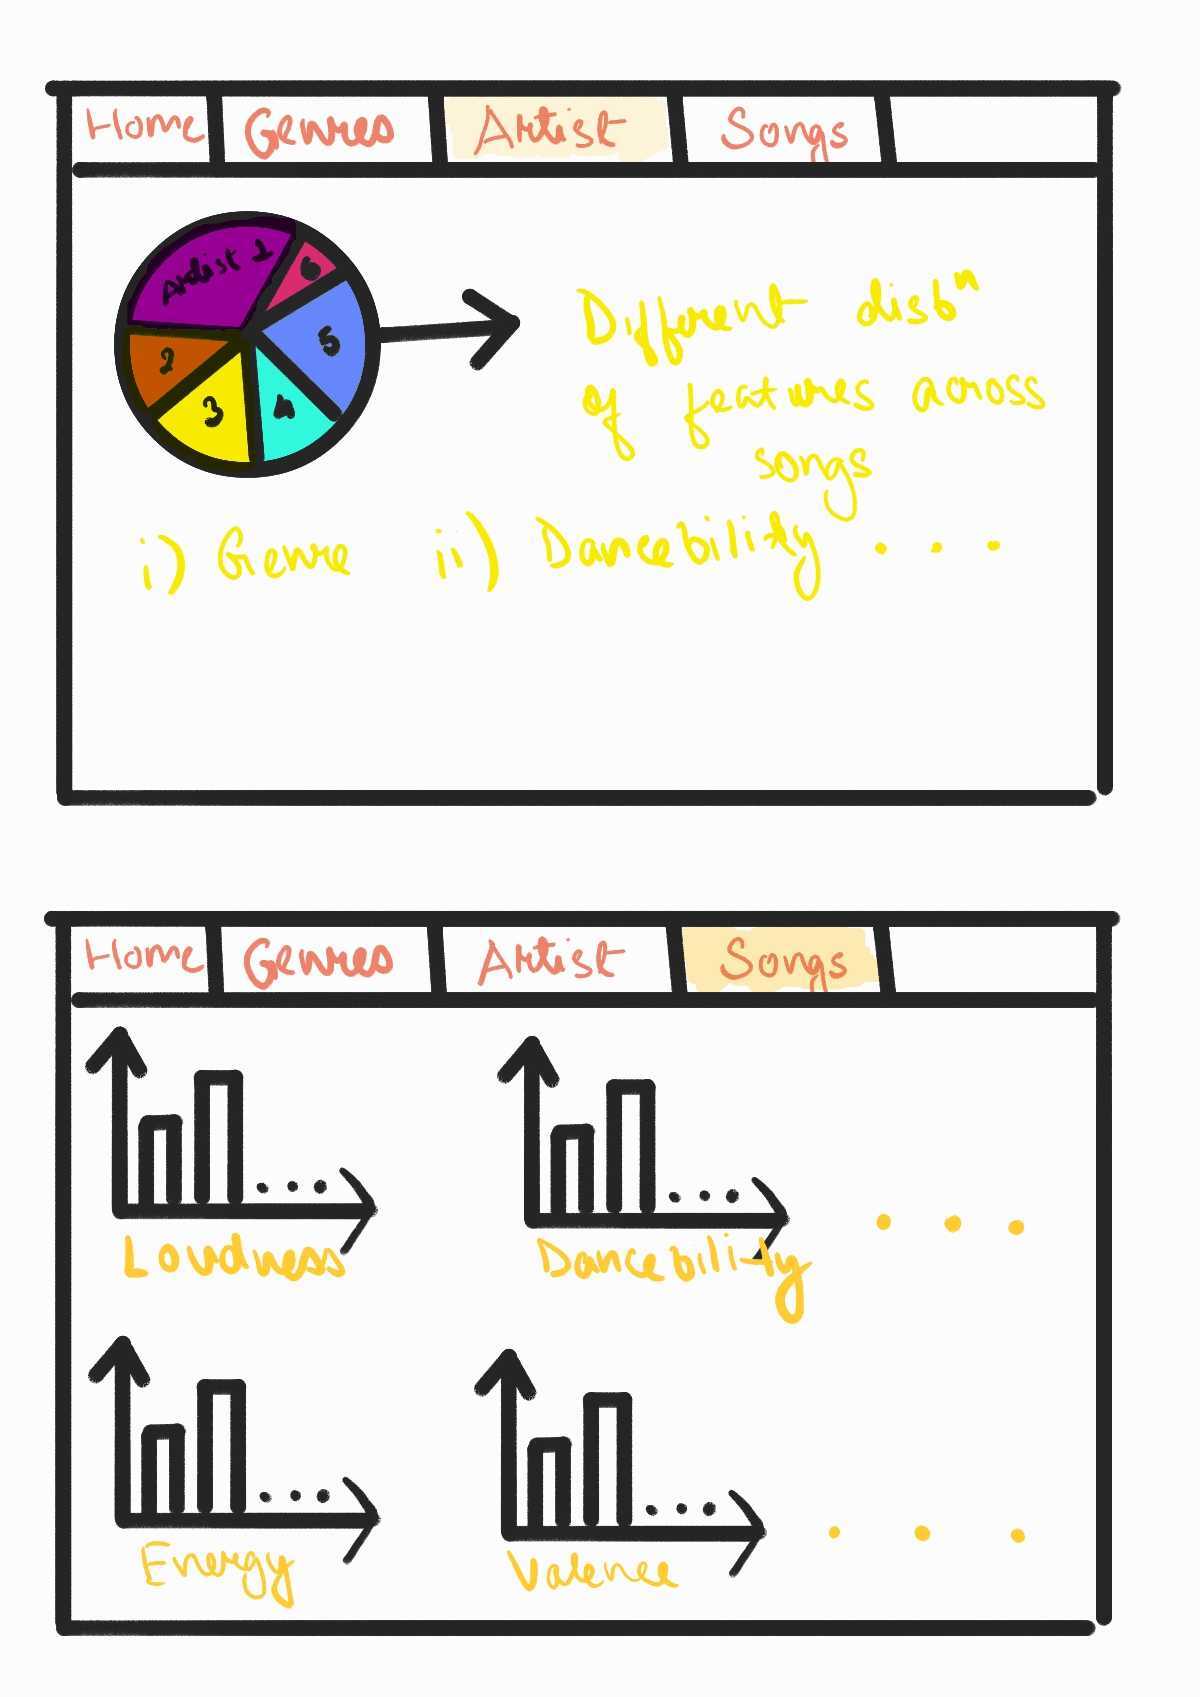 Home Genres Artist Songs
Artist 1
6
5
2
3
4
Different distbⁿ
of features across
songs
i) Genre ii) Dancebility . . .
Home Genres Artist Songs
Loudness Dancebility . . .
Energy Valence . . .